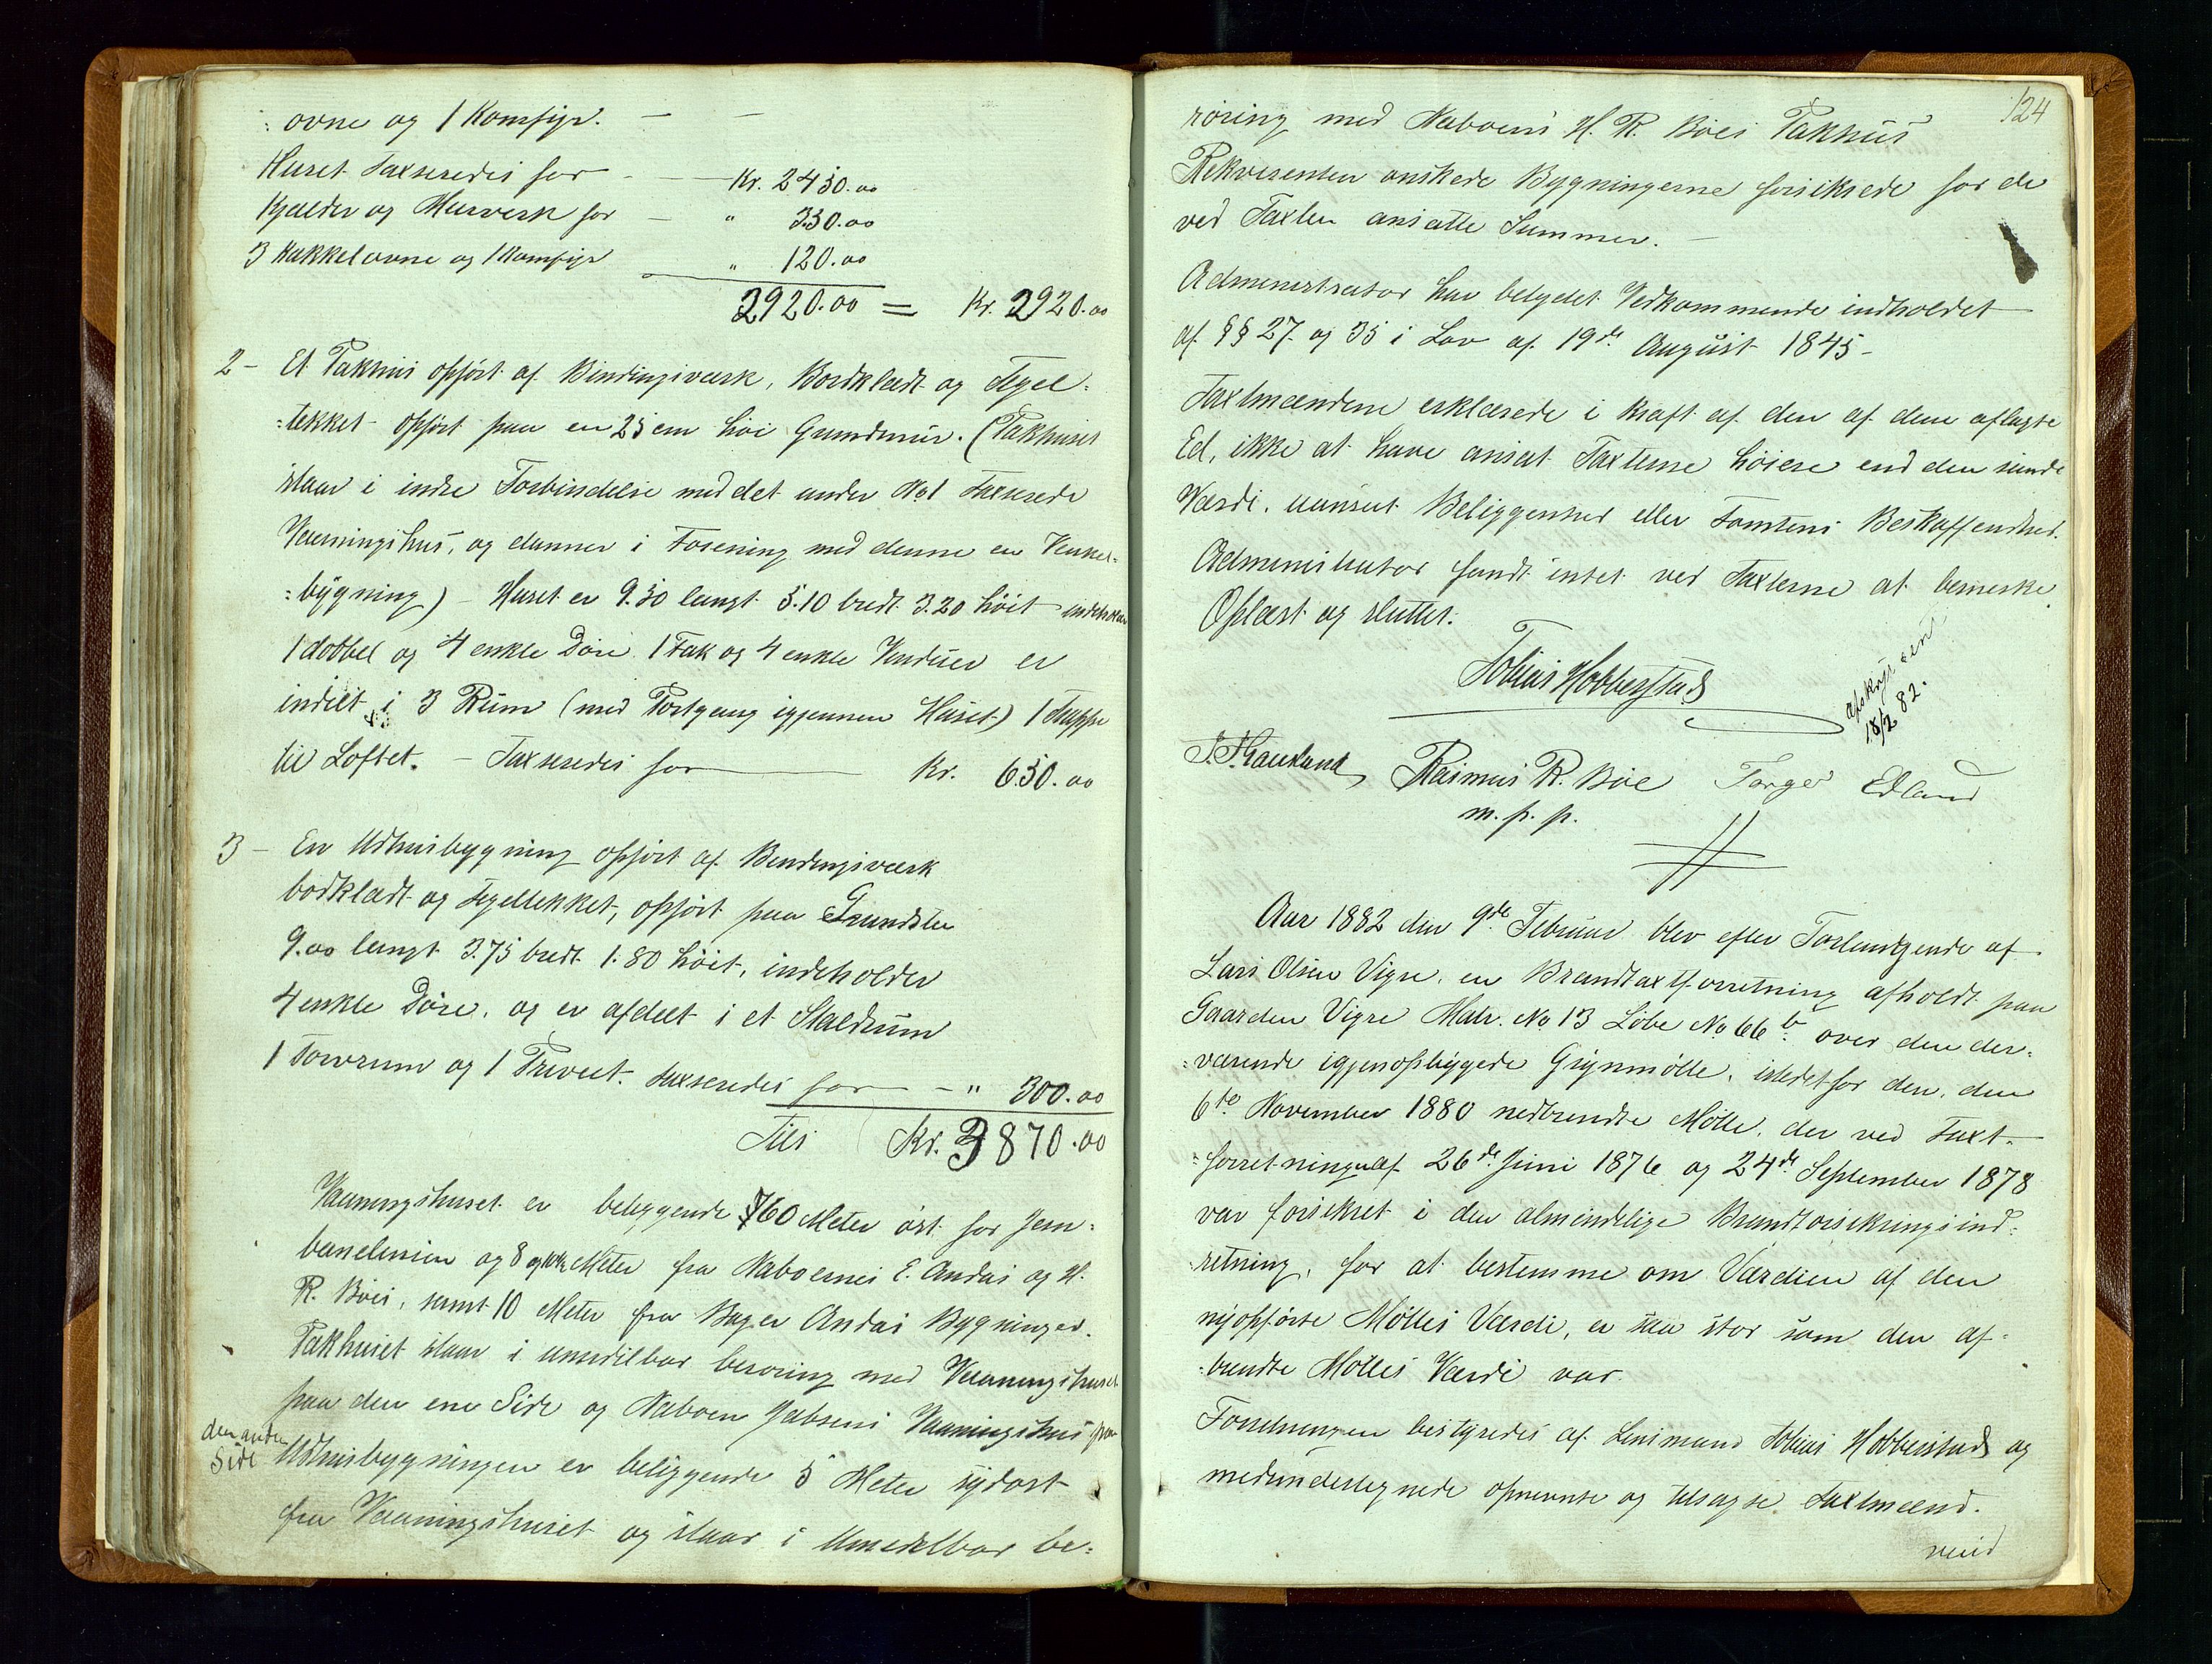 :ovne og 1 Komfyr. — —
Huset Taxseredes for — Kr. 2450.00
Kjælder og Murverk for — " 350.00
3 Kakkelovne og 1 Komfyr " 120.00
2920.00 = Kr. 2920.00
2 - Et Pakhus opført af Bindingsværk, Bordklædt og Tegel-
:tekket opført paa en 25 cm høi Grundmur. (Pakhuset
staar i indre Forbindelse med det under No 1 Taxserede
Vaaningshus, og danner i Forening med denne en Vinkel-
:bygning) - Huset er 9.30 langt 5.10 bredt 3.20 høit indeholder
1 dobbel og 4 enkle Døre 1 Fak og 4 enkle Vinduer er
indelt i 3 Rum (med Portgang igjennem Huset) 1 Trappe
til Loftet. - Taxseredes for — Kr. 650.00
3 - En Udhusbygning opført af Bindingsværk
bordklædt og tegeltekket, opført paa Grundsten
9.00 langt 3.75 bredt 1.80 høit, indeholder
4 enkle Døre, og er afdelt i et Staldrum
1 Torvrum og 1 Privet. taxseredes for — " 300.00
Tils Kr. 3870.00
Vaaningshuset er beliggende 760 Meter øst for Jern-
banelinien og 8 Meter fra Naboernes E. Andas og H.
R. Bøes, samt 10 Meter fra Bager Andas Bygninger.
Pakhuset staar i umidelbar berøring med Vaaningshuset
paa den ene Side og Naboen Jabsens Vaaningshus paa
den anden
Side
Udhusbygningen er beliggende 5 Meter sydost
fra Vaaningshuset og staar i umidelbar be-
124
røring med Naboens H. R. Bøes Pakhus
Rekvirenten ønskede Bygningerne forsikrede for de
ved Taxten ansatte Summer. —
Administrator har betydet Vedkommende indholdet
af §§ 27 og 35 i Lov af 19de August 1845 -
Taxtmændene erklærede i Kraft af den af dem aflagte
Ed, ikke at have ansat Taxterne høiere end den sande
Værdi, uanseet Beliggenhed eller Tomtens Beskaffenhed.
Administrator fandt intet ved Taxterne at bemerke
Oplæst og sluttet.
Tobias Hobberstad
afskrift sent
18/2 82.
Rasmus R. Bøe Torger Edland
m. p. p.
Aar 1882 den 9de Februar blev efter Forlangende af
Lars Olsen Vigre, en Brandtaxtforretning afholdt paa
Gaarden Vigre Matr. No 13 Løbe No 66 b over den der-
:værende igjenopbyggede Grynmølle, istedetfor den, den
6te November 1880 nedbrendte Mølle, der ved Taxt-
:forretninger af 26de Juni 1876 og 24de September 1878
var forsikret i den almindelige Brandforsikringsind-
:retning, for at bestemme om Værdien af den
nyopførte Mølles Værdi, er saa stor som den af-
:brendte Mølles Værdi var.
Forretningen bestyredes af Lensmand Tobias Hobberstad og
medunderlegnede opnævnte og tilsagte Taxtmænd.